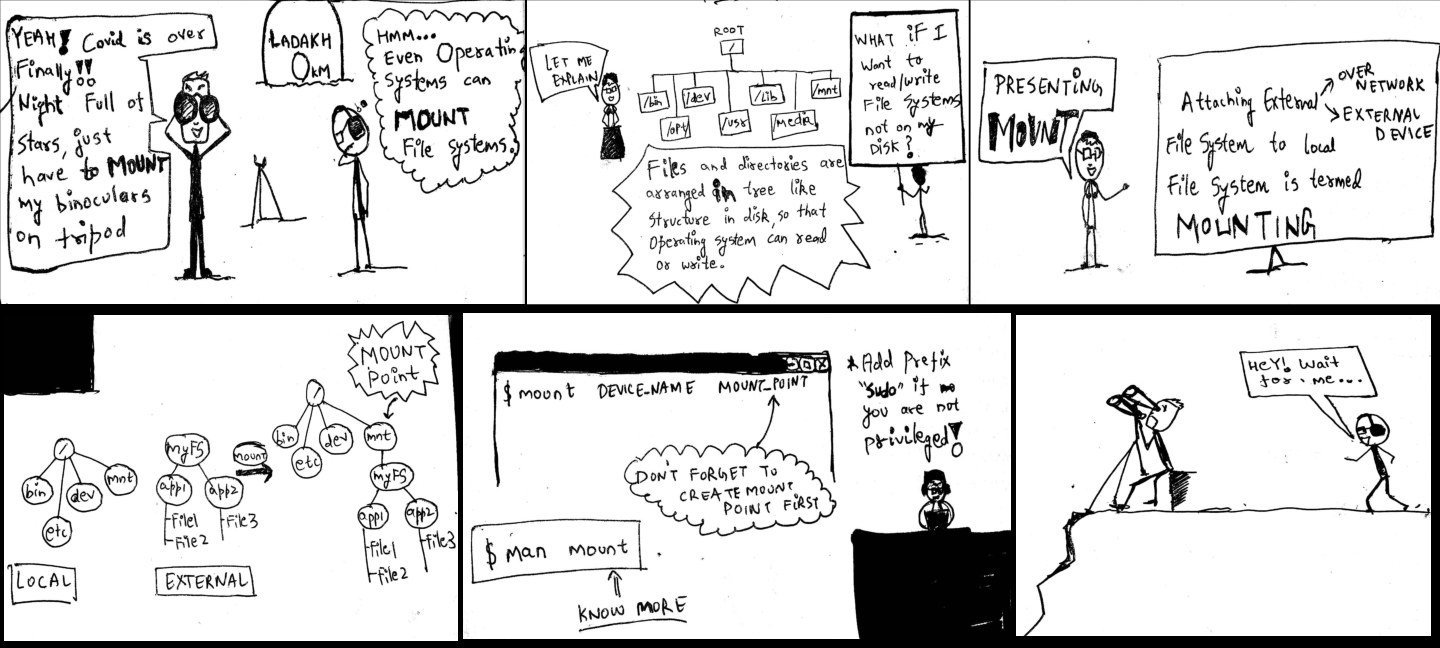 YEAH! Covid is over
Finally!!
Night Full of
Stars, just
have to MOUNT
my binoculars
on tripod
LADAKH
0KM
HMM...
Even Operating
Systems can
MOUNT
File Systems.
LET ME
EXPLAIN
ROOT
/
/bin
/dev
/Lib
/mnt
/opt
/usr
/media
Files and directories are
arranged in tree like
Structure in disk, so that
Operating system can read
or write.
WHAT iF I
Want to
read/write
File Systems
not on my
Disk?
PRESENTING
MOUNT
Attaching External
OVER
NETWORK
EXTERNAL
DEVICE
File System to local
File System is termed
MOUNTING
/
bin
etc
dev
mnt
LOCAL
myFS
app1
app2
File1
File2
File3
EXTERNAL
MOUNT
MOUNT
Point
/
bin
etc
dev
mnt
myFS
app1
app2
File1
File2
File3
$ mount DEVICE_NAME MOUNT_POINT
DON'T FORGET TO
CREATE MOUNT
POINT FIRST
$ man mount
KNOW MORE
* Add Prefix
"Sudo" if
you are not
privileged!
HeY! Wait
for me...